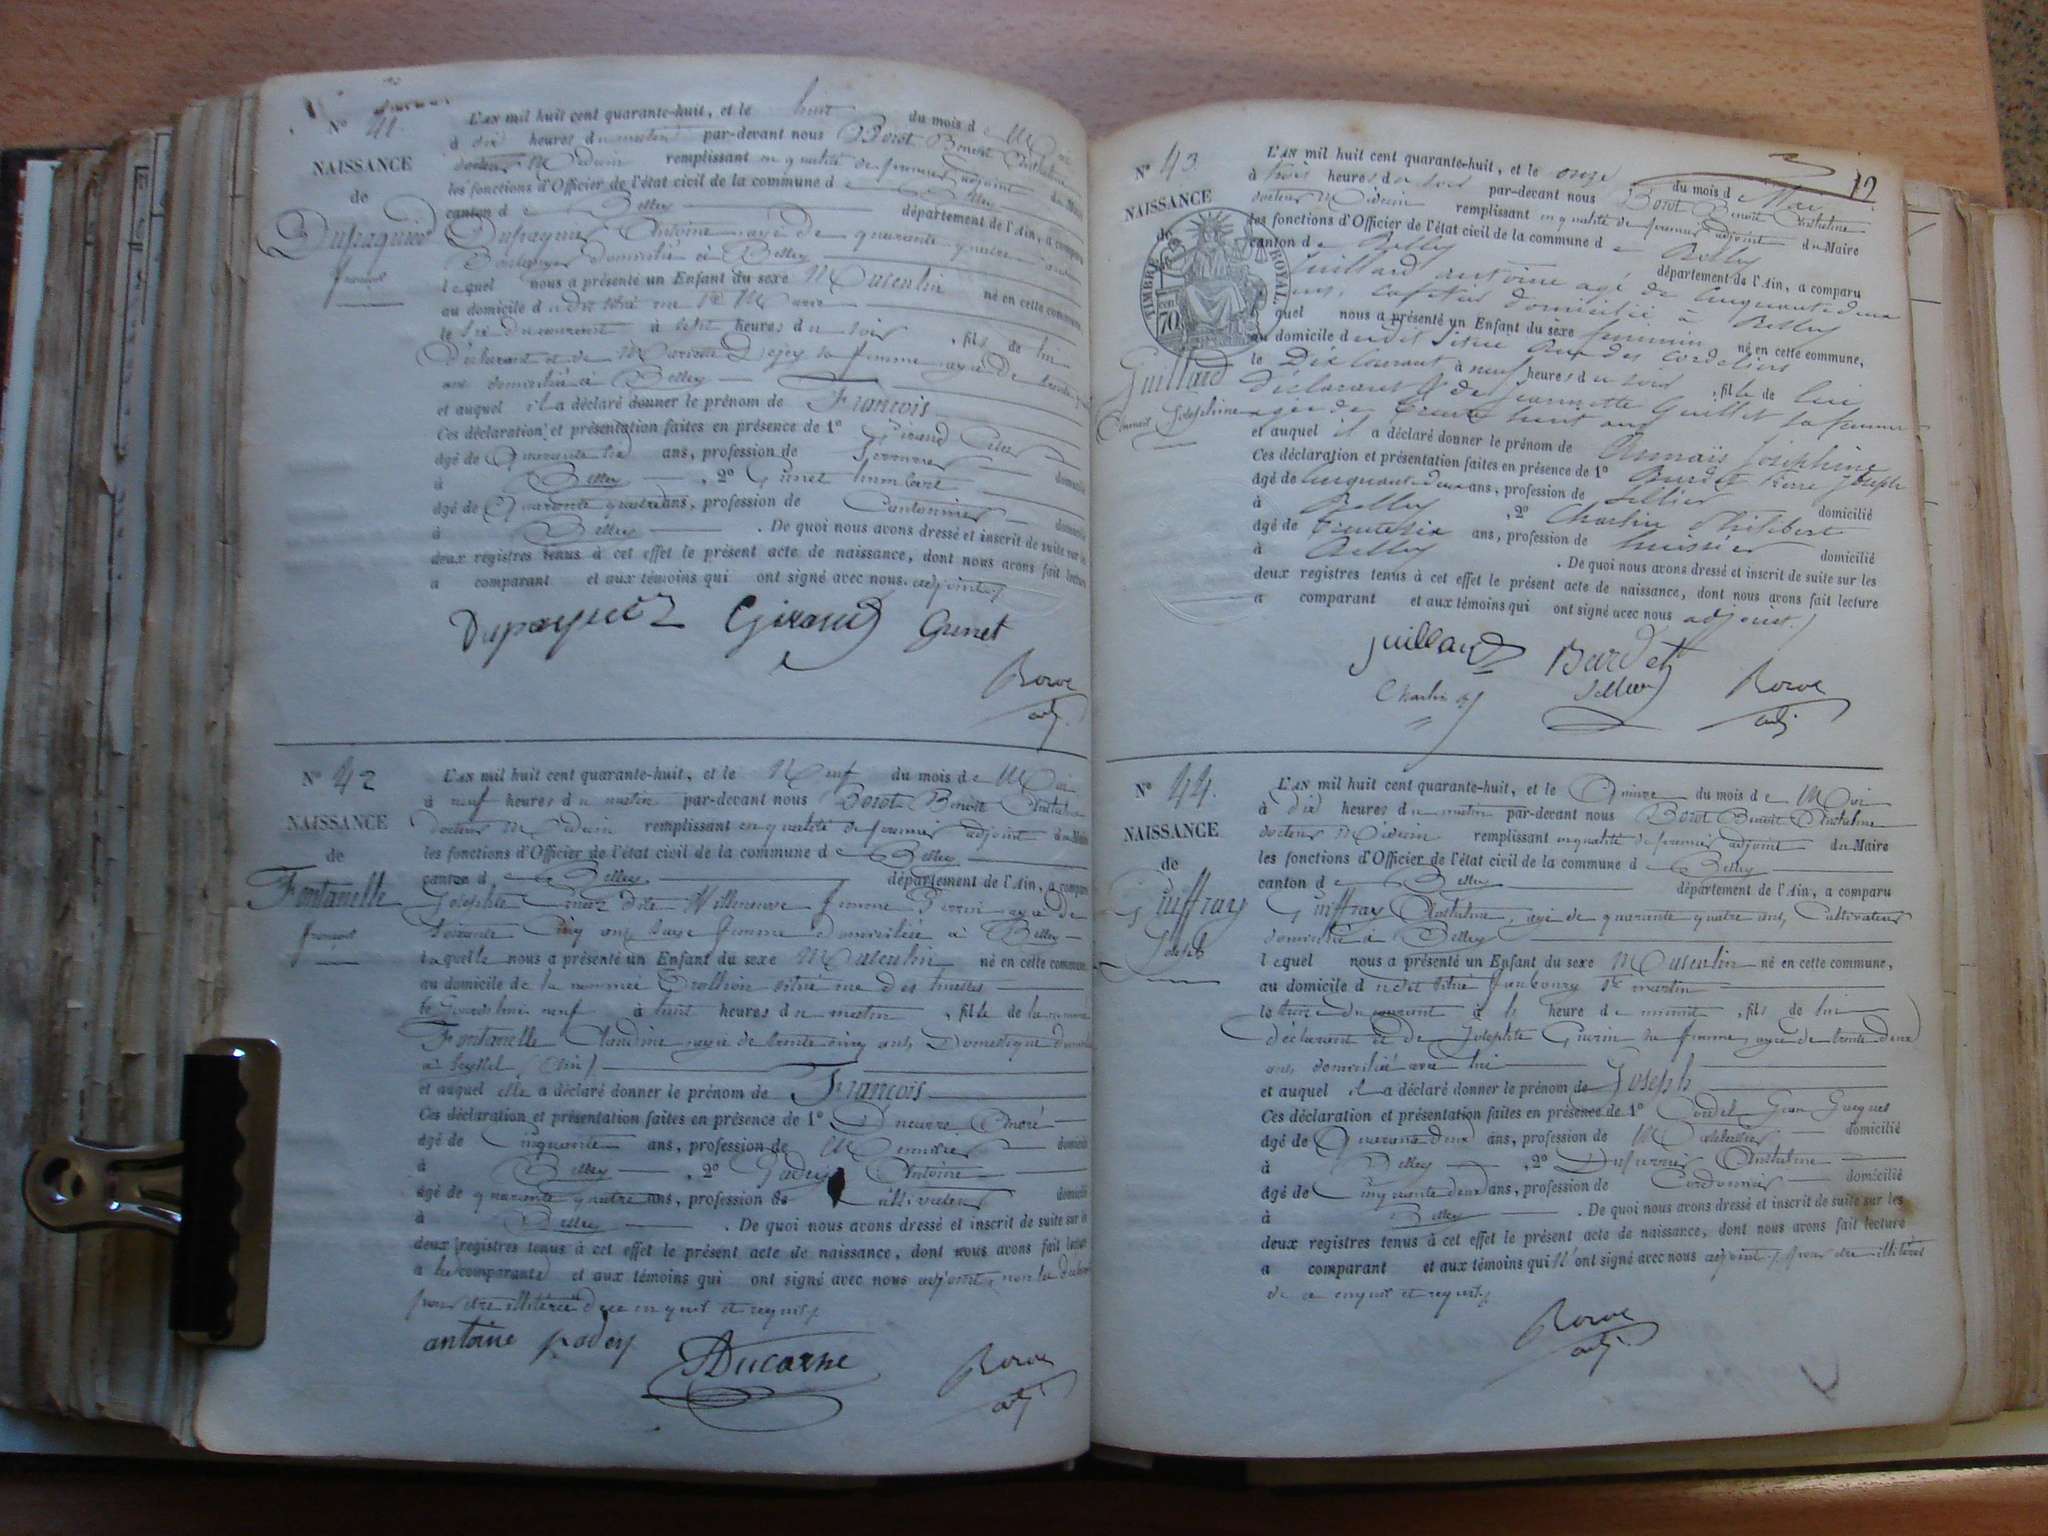 N° 41.
NAISSANCE
de
françois
L'AN mil huit cent quarante-huit, et le huit du mois de Mai
à dix heures du matin par-devant nous Borot Benoit Anthelme
docteur Médecin remplissant en qualité de premier adjoint du Maire
les fonctions d'Officier de l'état civil de la commune de Belley
canton de Belley département de l'Ain, a comparu
Antoine agé de quarante quatre ans
Boulanger domicilié à Belley
lequel nous a présenté un Enfant du sexe Masculin né en cette commune,
au domicile du dit situé rue
le six du courant à sept heures du soir, fils de lui
Déclarant et de Mariette sa femme agée de trente
ans domiciliée à Belley
et auquel il a déclaré donner le prénom de François
Ces déclaration et présentation faites en présence de 1° Giraud
âgé de Quarante six ans, profession de domicilié
à Belley, 2° Grinet humbert
âgé de Quarante quatre ans, profession de Cantonnier domicilié
à Belley. De quoi nous avons dressé et inscrit de suite sur les
deux registres tenus à cet effet le présent acte de naissance, dont nous avons fait lecture
a comparant et aux témoins qui ont signé avec nous adjoint
Girand
adj.
N° 42
NAISSANCE
de
Fontanelle
françois
L'AN mil huit cent quarante-huit, et le Neuf du mois de Mai
à neuf heures du matin par-devant nous Borot Benoit Anthelme
docteur Médecin remplissant en qualité de premier adjoint du Maire
les fonctions d'Officier de l'état civil de la commune de Belley
canton de Belley département de l'Ain, a comparu
Josephte dite Villeneuve femme Perrin agée de
soixante Cinq ans sage femme domiciliée à Belley
laquelle nous a présenté un Enfant du sexe Masculin né en cette commune,
au domicile de la nommée situé rue des
le jourdhui neuf à huit heures du matin, fils de la nommée
Fontanelle Claudine agée de trente cinq ans, Domestique
à Seyssel (Ain)
et auquel elle a déclaré donner le prénom de François
Ces déclaration et présentation faites en présence de 1° Ducarre
âgé de Cinquante ans, profession de Menuisier domicilié
à Belley, 2° Antoine
âgé de quarante quatre ans, profession de Cultivateur domicilié
à Belley. De quoi nous avons dressé et inscrit de suite sur les
deux registres tenus à cet effet le présent acte de naissance, dont nous avons fait lecture
a la comparante et aux témoins qui ont signé avec nous adjoint, non la
pour être illitérée de ce enquis et requis
antoine
Ducarne
adj.
12
N° 43
NAISSANCE
de
TIMBRE ROYAL.
70
Guillard
Josephine
L'AN mil huit cent quarante-huit, et le onze du mois de Mai
à trois heures du soir par-devant nous Borot Benoit Anthelme
docteur Médecin remplissant en qualité de premier adjoint du Maire
les fonctions d'Officier de l'état civil de la commune de Belley
canton de Belley département de l'Ain, a comparu
Guillard antoine agé de Cinquante deux
ans, cafetier domicilié à Belley
lequel nous a présenté un Enfant du sexe féminin né en cette commune,
au domicile du dit Situé Rue des Cordeliers
le Dix Courant à neuf heures du soir, fille de lui
déclarant & de jeannette Guillet sa femme
agée de Trente huit ans
et auquel il a déclaré donner le prénom de Josephine
Ces déclaration et présentation faites en présence de 1° Burdet Pierre Joseph
âgé de Cinquante deux ans, profession de Sellier domicilié
à Belley, 2° Charlin Philibert
âgé de trente six ans, profession de huissier domicilié
à Belley. De quoi nous avons dressé et inscrit de suite sur les
deux registres tenus à cet effet le présent acte de naissance, dont nous avons fait lecture
a comparant et aux témoins qui ont signé avec nous adjoint.
guillard Burdet
Charlin Sellier
adj.
N° 44.
NAISSANCE
de
Guiffray
Joseph
L'AN mil huit cent quarante-huit, et le Quinze du mois de Mai
à dix heures du matin par-devant nous Borot Benoit Anthelme
docteur Médecin remplissant en qualité de premier adjoint du Maire
les fonctions d'Officier de l'état civil de la commune de Belley
canton de Belley département de l'Ain, a comparu
Guiffray Anthelme, agé de quarante quatre ans, Cultivateur
domicilié à Belley
lequel nous a présenté un Enfant du sexe Masculin né en cette commune,
au domicile du dit situé faubourg St martin
le treize du courant à heure de minuit, fils de lui
déclarant et de Josephte Guerin sa femme, agée de trente deux
ans domiciliée avec lui
et auquel il a déclaré donner le prénom de Joseph
Ces déclaration et présentation faites en présence de 1° Cordel Jean Jacques
âgé de Quarante deux ans, profession de domicilié
à Belley, 2° Anthelme
âgé de Cinquante deux ans, profession de Cordonnier domicilié
à Belley. De quoi nous avons dressé et inscrit de suite sur les
deux registres tenus à cet effet le présent acte de naissance, dont nous avons fait lecture
a comparant et aux témoins qui n'ont signé avec nous adjoint, pour être illitérés
de ce enquis et requis
adj.